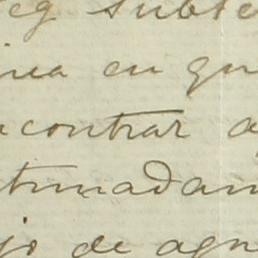 eg subte
ina en qu
contrar a
timadam
jo de agu